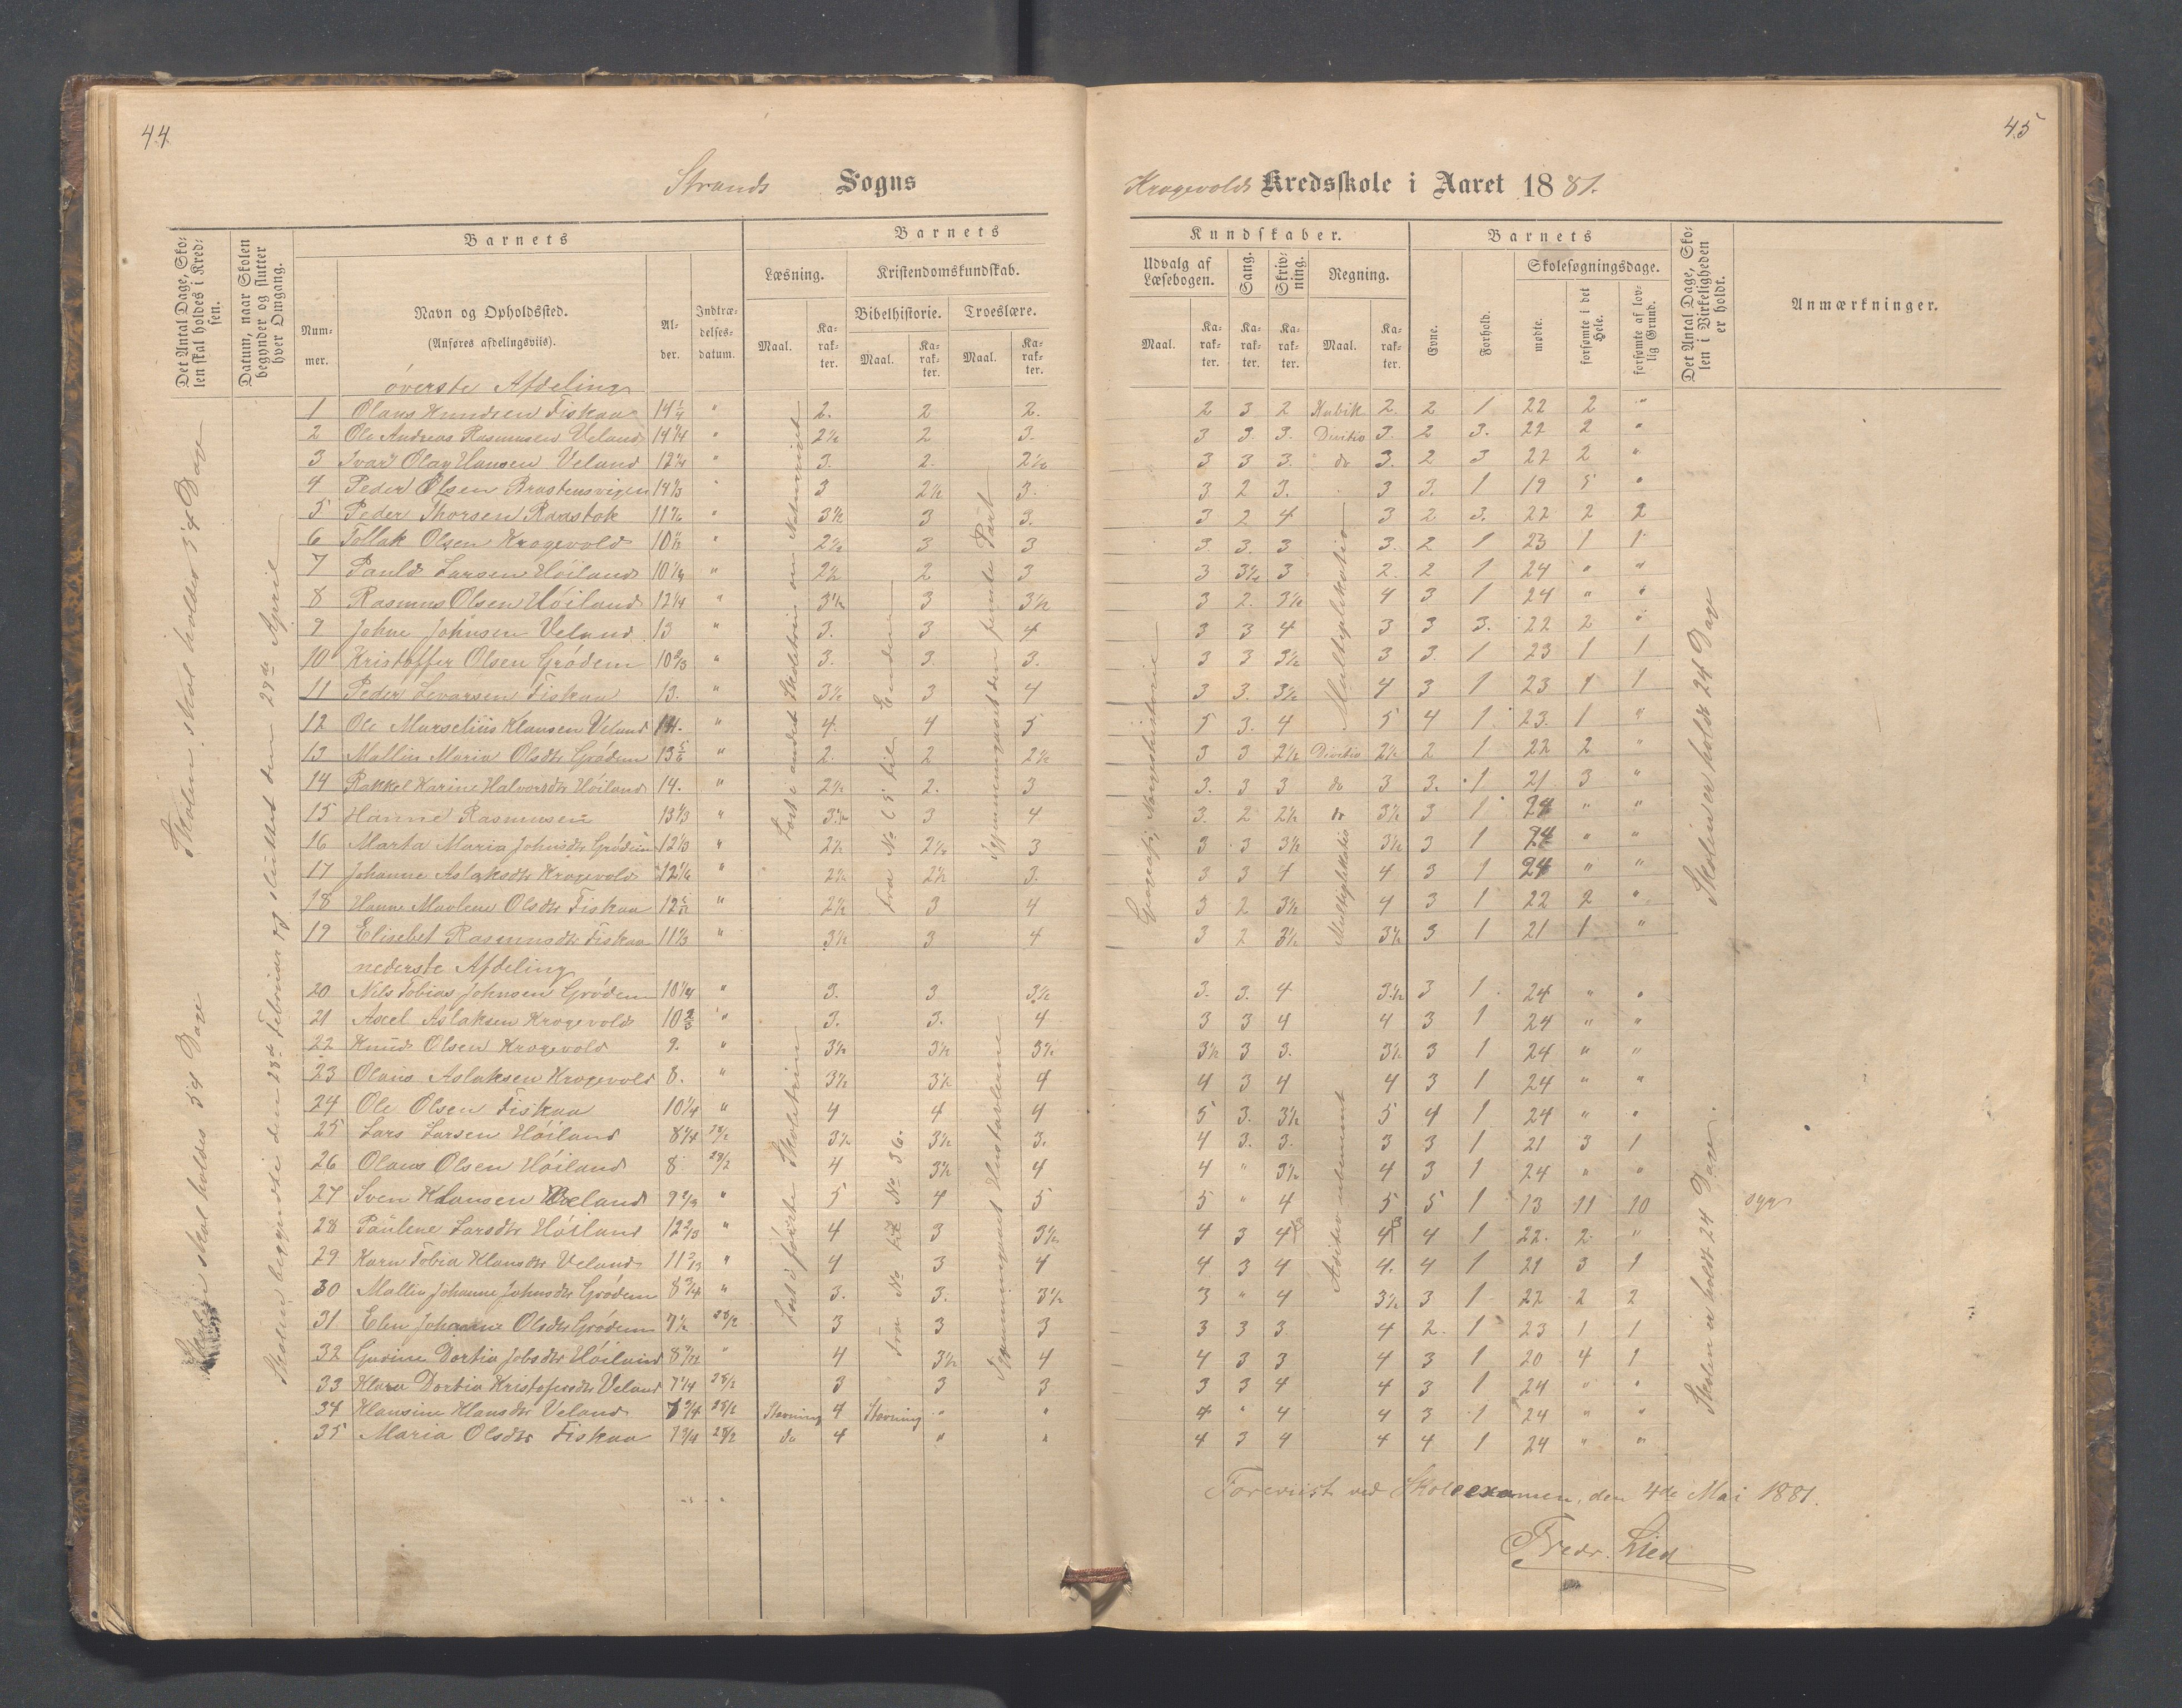 44
45
Strands Sogns
Krogevolds Kredsskole i Aaret 1881.
Det Antal Dage, Skolen skal holdes i Kredsen.
Datum, naar Skolen begynder og slutter hver Omgang.
Barnets
Nummer.
Navn og Opholdssted.
(Anføres afdelingsviis).
Alder.
Indtrædelses-datum.
Barnets
Læsning.
Maal.
Karakter.
Kristendomskundskab.
Bibelhistorie.
Maal.
Karakter.
Troeslære.
Maal.
Karakter.
Kundskaber.
Udvalg af Læsebogen.
Maal.
Karakter.
Sang.
Karakter.
Skrivning.
Karakter.
Regning.
Maal.
Karakter.
Barnets
Evne.
Forhold.
Skolesøgningsdage.
mødte.
forsømte i det Hele.
forsømte af lovlig Grund.
Det Antal Dage, Skolen i Virkeligheden er holdt.
Anmærkninger.
øverste Afdeling
1 Olaus Knudsen Fiskaa 14 1/4 " 2. 2 2. 2 3 2 Kubik 2. 2 1 22 2 "
2 Ole Andreas Rasmusen Veland 14 1/4 " 2½ 2 3. 3 3. 3. Divitio 3. 2 3. 22 2 "
3 Ivar Olay Hansen Veland 12 1/4 " 3. 2. 2½ 3 3 3. do 3. 2 3 22 2 "
4 Peder Olsen 14 2/3 " 3 2½ 3. 3 2 3. 3 3. 1 19 5 "
5 Peder Thorsen Raastok 11 1/6 " 3½ 3 3. 3 2 4 3 2 3. 22 2 2
6 Tollak Olsen Krogevold 10 " 2½ 3 3 3 3. 3 3. 2 1 23 1 1
7 Pauld Larsen Høiland 10 1/4 " 2½ 2 3 3 3½ 3 2. 2 1 24 " "
8 Rasmus Olsen Høiland 12 1/4 " 3½ 3 3½ 3 2. 3½ 4 3 1 24 " "
9 Johne Johnsen Veland 13 " 3. 3 4 3 3 4 3 3 3. 22 2 "
10 Kristoffer Olsen Grødem 10 2/3 " 3. 3. 3. 3 3 3½ 3 3. 1 23 1 1
11 Peder Sevarsen Fiskaa 13. " 3½ 3 4 3 3. 3½ 4 3 1 23 1 1
12 Ole Marselius Klausen Veland 14. " 4. 4 5 5 3. 4 5 4 1 23. 1 "
13 Mallin Maria Olsdtr Grødem 13 5/6 " 2. 2 2½ 3 3 2½ Divitio 2½ 2 1 22 2 "
14 Rakkel Karine Halvorsdtr Høiland 14. " 2½ 2. 3 3. 3 3 do 3 3. 1 21 3 "
15 Hanne Rasmusen 13 1/3 " 3½ 3 4 3. 2 2½ 3½ 3 1 24 " "
16 Marta Maria Johnsdtr Grødem 12 1/3 " 2½ 2½ 3 3 3 3½ 3½ 3 1 24 " "
17 Johanne Aslaksdtr Krogevold 12 1/6 " 2½ 2½ 3. 3 3 4 4 3 1 24 " "
18 Hanne Maolene Olsdtr Fiskaa 12 " 2½ 3 4 3 2 3½ 4 3 1 22 2 "
19 Elisebet Rasmusdtr Fiskaa 11 2/3 " 3½ 3 4 3 2 3½ 3½ 3 1 21 1 "
nederste Afdeling
20 Nils Tobias Johnsen Grødem 10 1/4 " 3. 3 3½ 3. 3. 4 3½ 3 1 24 " "
21 Axel Aslaksen Krogevold 10 2/3 " 3. 3. 4 3 3 4 4 3 1 24 " "
22 Knud Olsen Krogevold 9. " 3½ 3½ 3½ 3½ 3 3. 3½ 3 1 24 " "
23 Olaus Aslaksen Krogevold 8. " 3½ 3½ 4 4 3 4 4 3 1 24 " "
24 Ole Olsen Fiskaa 10 1/4 " 4 4 4 5 3. 3½ 5 4 1 24 " "
25 Lars Larsen Høiland 8 1/4 28/2 3½ 3½ 3. 4 3. 3. 3 3 1 21 3 1
26 Olaus Olsen Høiland 8 28/2 4 3½ 4 4 " 3½ 4 3 1 24 " "
27 Sven Klausen Veland 9 2/3 " 5 4 5 5 " 4 5 5 1 13 11 10 syg
28 Paulene Larsdtr Høiland 12 2/3 " 4 3 3½ 4 3 4 4 4 1 22. 2 "
29 Karn Tobia Klausdtr Veland 11 2/3 " 4 3 4 4 3 4 4. 4 1 21 3 1
30 Mallin Johanne Johnsdtr Grødem 8 3/4 " 3. 3. 3½ 3 " 4 3½ 3 1 22 2 2
31 Elen Johanne Olsdtr Grødem 7½ 28/2 3 3 3 3 3 3. 4 2. 1 23 1 1
32 Gusine Dortia Jobsdtr Høiland 8 " 4 3½ 4 4 3 3 4 3 1 20 4 1
33 Klara Dortia Kristofersdtr Veland 7 1/4 28/2 3 3 3 3 3 4 4 3 1 24 " "
34 Klausine Klausdtr Veland 7 3/4 28/2 Stavning 4 Stavning " " 4 " 4 4 3 1 24 " "
35 Maria Olsdtr Fiskaa 7 3/4 28/2 do 4 " " 4 3 4 4 4 1 24 " "
Skolen skal holdes 54 Dage
Skolen skal holdes 54 Dage
Skolen begyndte den 28de Februar og sluttet den 29de April
Læst i andet Skoletrin om Naturrivet
Fra No 65 til Enden
Igjennemgaat den femte Part
Læst i første Skoletrin
Fra No til No 36.
Igjennemgaat Hustavlerne
Geografi, Norgeshistorie
Multiplikation
Multiplikatio
Aditio ubenevnt
Skolen er holdt 24 Dage
Skolen er holdt 24 Dage.
Foreviist ved Skoleexamen, den 4de Mai 1881.
Fredr. Lied